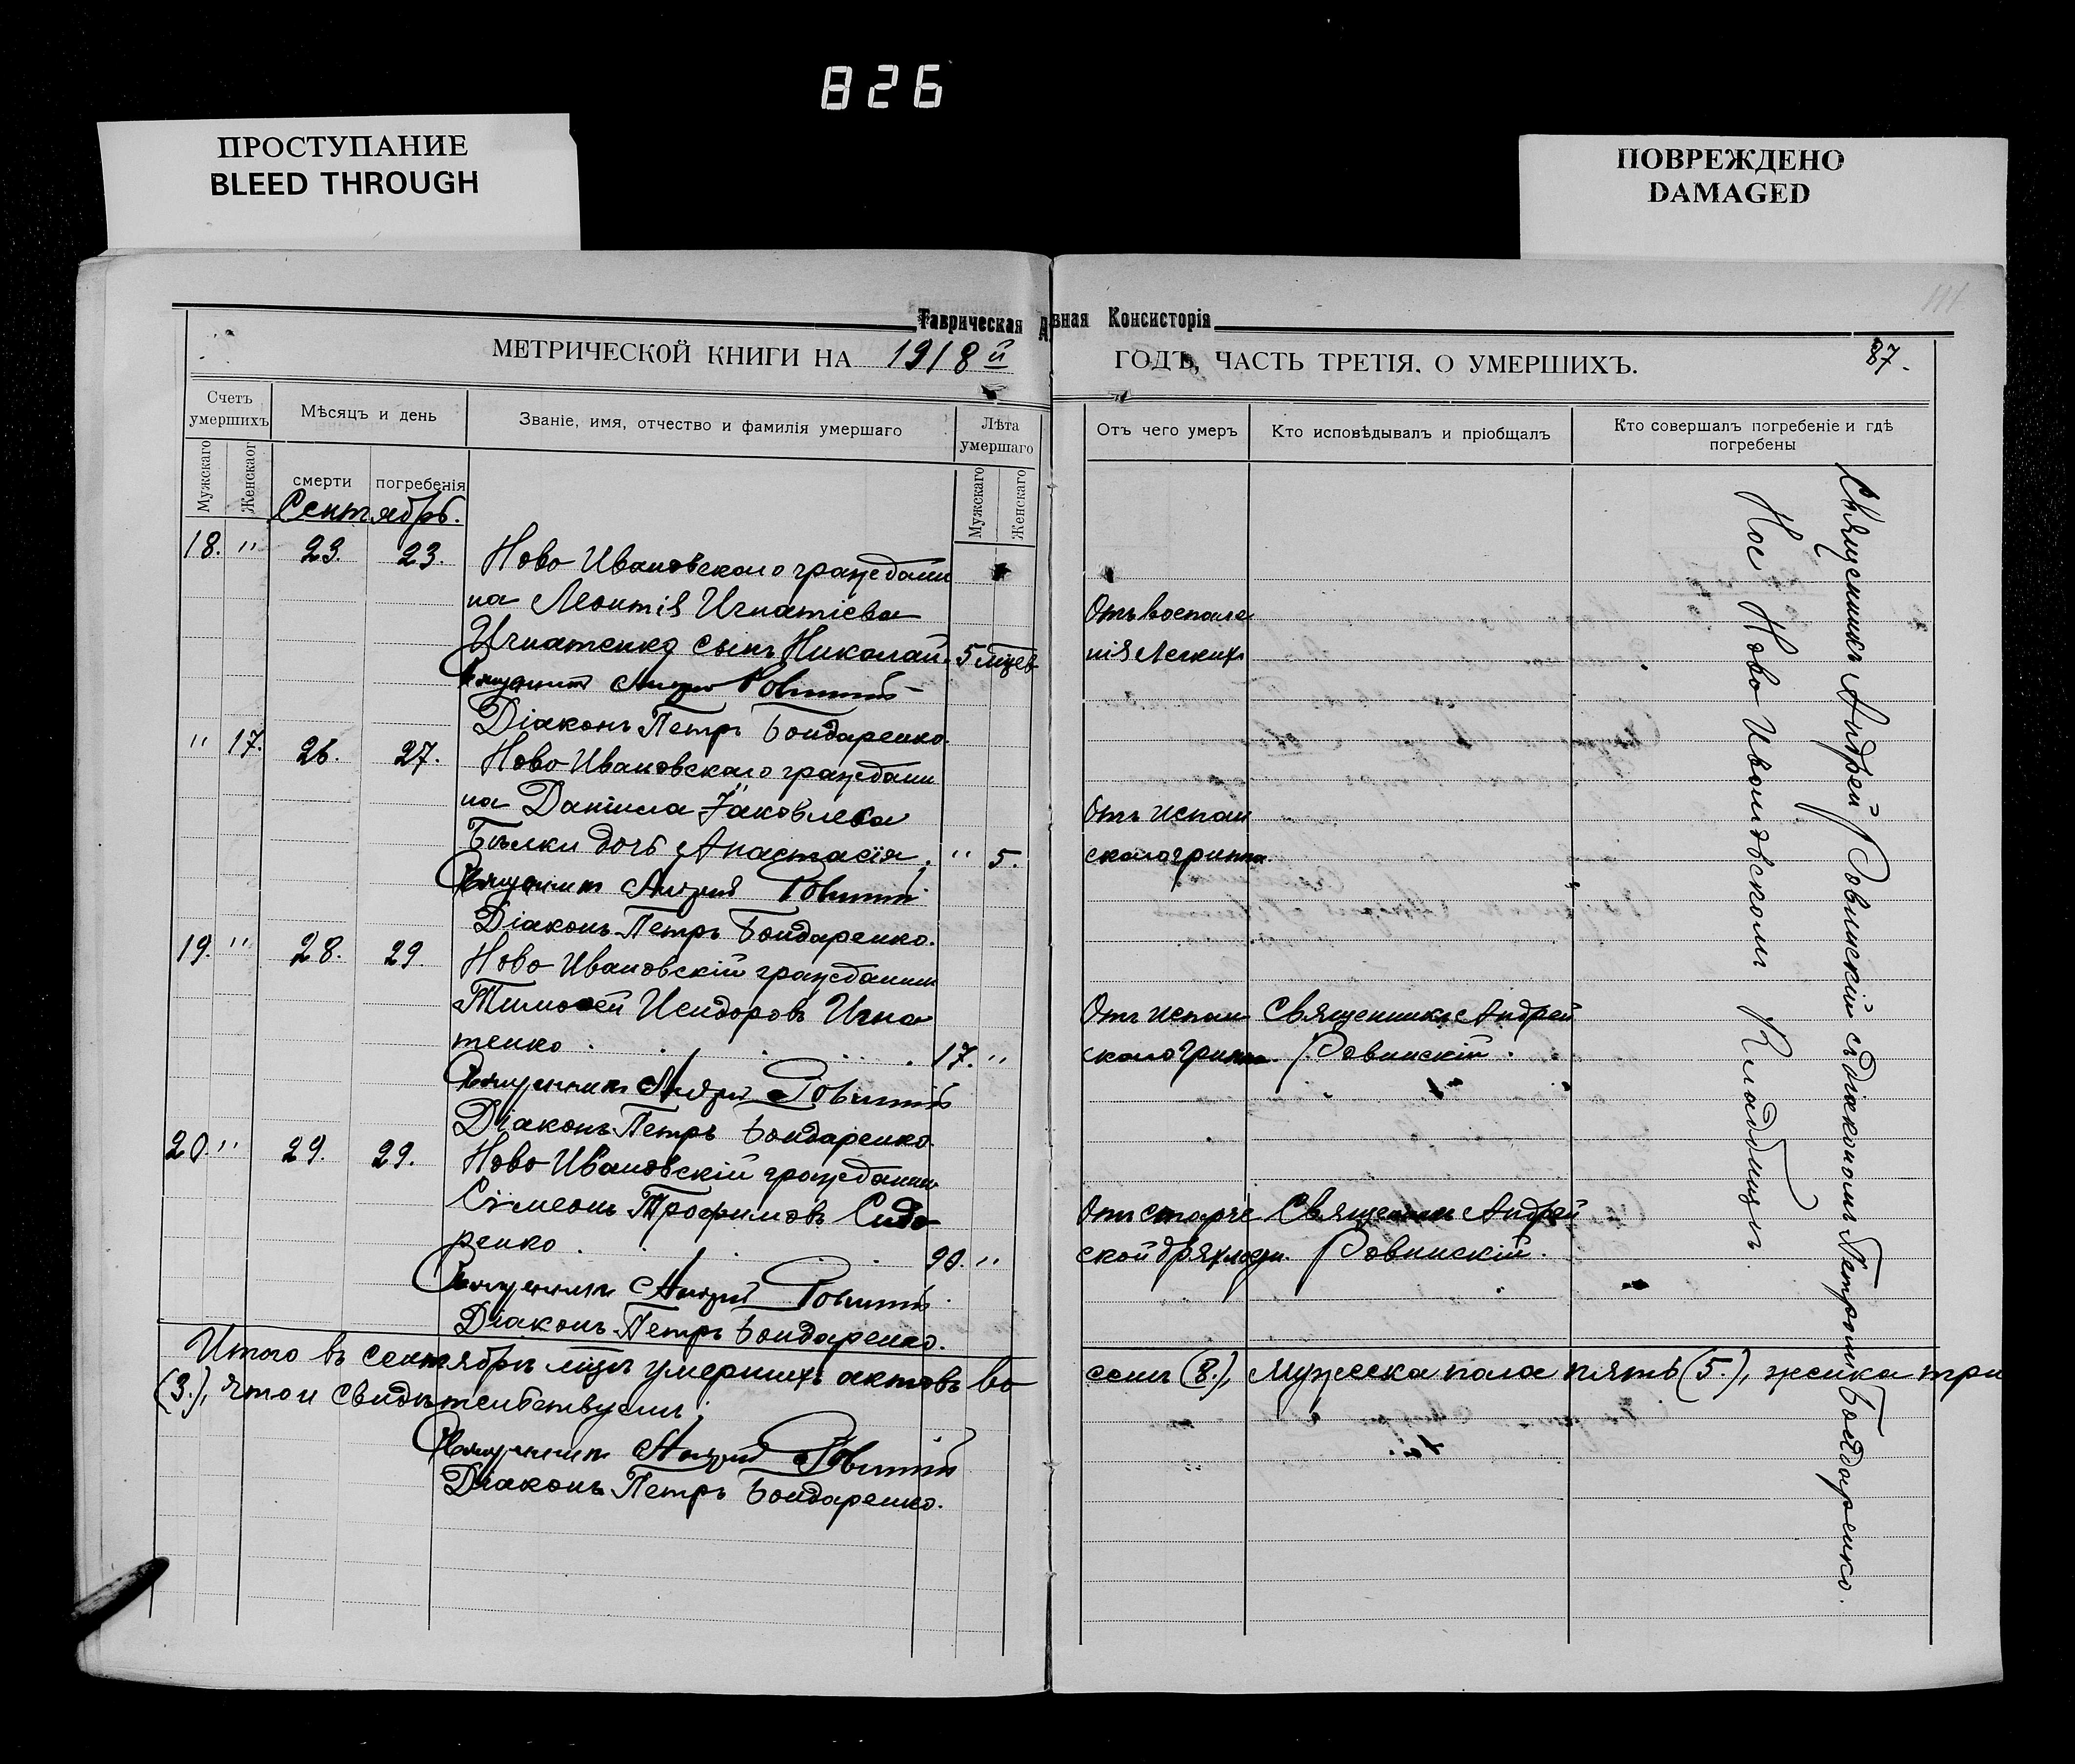 826
ПРОСТУПАНИЕ
BLEED THROUGH
ПОВРЕЖДЕНО
DAMAGED
Таврическая Д вная Консисторія
МЕТРИЧЕСКОЙ КНИГИ НА 1918 й ГОДЪ, ЧАСТЬ ТРЕТІЯ, О УМЕРШИХЪ.
87.
111
Счетъ умершихъ
Мужскаго
Женскаог
Мѣсяцъ и день
смерти
погребенія
Званіе, имя, отчество и фамилія умершаго
Лѣта умершаго
Мужскаго
Женскаго
Отъ чего умеръ
Кто исповѣдывалъ и пріобщалъ
Кто совершалъ погребеніе и гдѣ
погребены
Сентябрь.
18. " 23. 23. Ново Ивановскаго граждани
на Леонтія Игнатіева
Отъ воспале
Игнатенко сынъ Николай. 5 мцев
нія легкихъ
Священникъ Андрей Ровинскій
Діаконъ Петръ Бондаренко.
" 17. 26. 27. Ново Ивановскаго граждани
на Даніила Іаковлева
Отъ испан
Бѣлки дочь Анастасія. " 5.
скаго гриппа.
Священникъ Андрей Ровинскій
Діаконъ Петръ Бондаренко.
19. " 28. 29. Ново Ивановскій гражданинъ
Тимоѳей Исидоровъ Игна
Отъ испан
Священникъ Андрей
тенко 17. "
скаго гриппа.
Ровинскій.
Священникъ Андрей Ровинскій
Діаконъ Петръ Бондаренко.
20. " 29. 29. Ново Ивановскій гражданинъ
Сѵмеонъ Трофимовъ Сидо
Отъ старче
Священникъ Андрей
ренко 90. "
ской дряхлости.
Ровинскій.
Священникъ Андрей Ровинскій
Діаконъ Петръ Бондаренко.
Священникъ Андрей Ровинскій съ діакономъ Петромъ Бондаренко.
На Ново Ивановскомъ Кладбищѣ.
Итого въ сентябрѣ мцѣ умершихъ актовъ во
семь (8.), мужеска пола пять (5.), женска три
(3.), что и свидѣтельствуемъ:
Священникъ Андрей Ровинскій
Діаконъ Петръ Бондаренко.